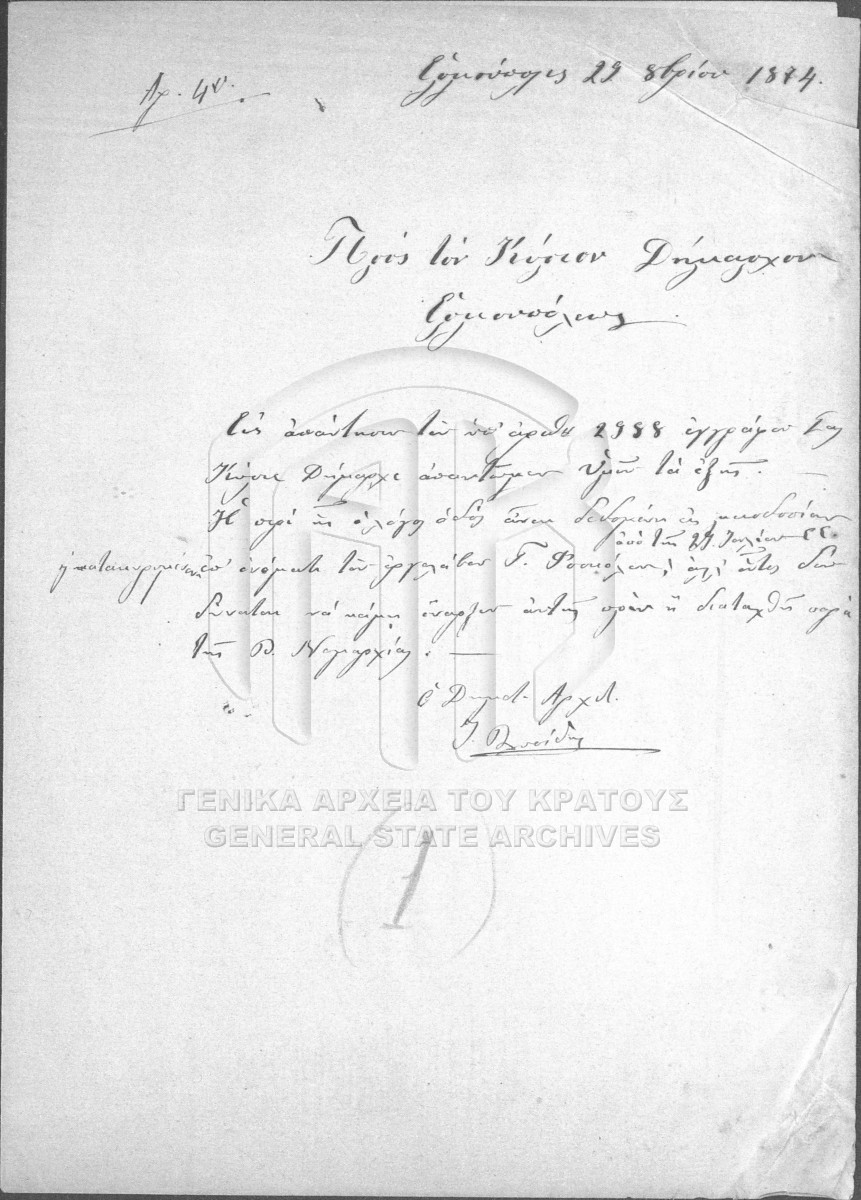 Ἑρμούπολις 29 8βρίου 1874.
Ἀρ. 40.
Πρὸς τὸν Κύριον Δήμαρχον
Ἑρμουπόλεως.
Εἰς ἀπάντησιν τοῦ ὑπ' ἀριθ 2988 ἐγγράφου σας
Κύριε Δήμαρχε ἀπαντῶμεν Ὑμῖν τὰ ἑξῆς. —
Ἡ περὶ ἧς ὁ λόγος ὁδός εἶναι δεδομένη εἰς
ἀπὸ τῆς 27 Ἰουλίου
ἡ κατακυρωμένη
ἐπ' ὀνόματι τοῦ ἐργολάβου Γ. ἀλλ' οὗτος δὲν
δύναται νὰ κάμῃ ἔναρξιν αὐτῆς πρὶν ἢ διαταχθῇ παρὰ
τῆς Β. Νομαρχίας. —
ὁ Δημοτ. Ἀρχιτ.
1
ΓΕΝΙΚΑ ΑΡΧΕΙΑ ΤΟΥ ΚΡΑΤΟΥΣ
GENERAL STATE ARCHIVES